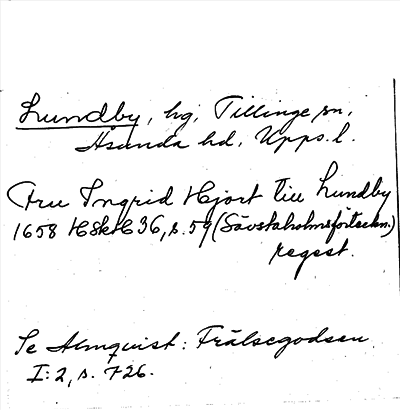 Lundby, hg, Tillinge sn,
Åsunda hd, Upps. l.
Fru Ingrid Hjort till Lundby
1658 HSkH 36, s. 59 (Sävstaholmsförteckn.)
regest.
Se Almquist: Frälsegodsen
I:2, s. 726.